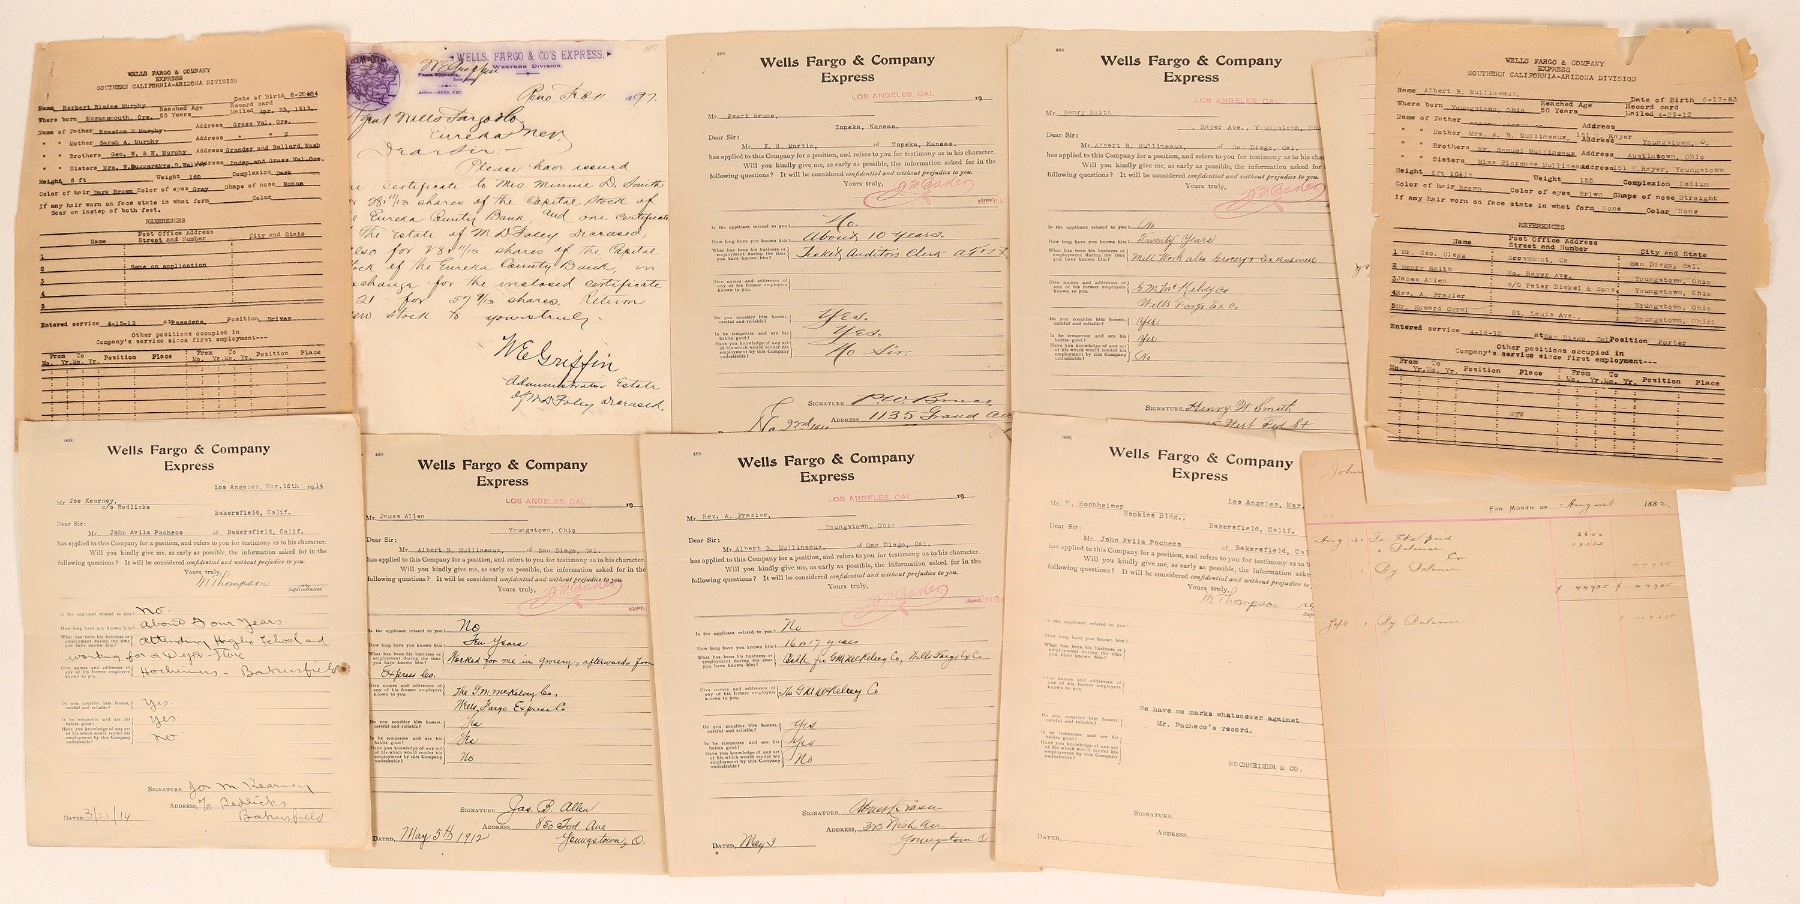 WELLS FARGO & COMPANY
EXPRESS
SOUTHERN CALIFORNIA-ARIZONA DIVISION
Name Herbert Blaine Murphy Date of Birth 8-20-84
Where born Ore. Reached Age 50 Years Record card Mailed Apr. 23, 1913.
Name of Father Preston H Murphy Address Grass Val. Ore.
" " Mother Sarah A. Murphy Address " " 2
" " Brothers Geo. W. & N. Murphy Address Grander and Ballard Wash
" " Sisters Address Indep. and Grass Val. Ore.
Height 6 ft Weight 165 Complexion Dark
Color of hair Dark Brown Color of eyes Gray Shape of nose Roman
If any hair worn on face state in what form Color
Scar on instep of both feet.
REFERENCES
Name Post Office Address Street and Number City and State
1
2 Same on application
3
4
Entered service 4-15-13 at Pasadena, Position Driver
Other positions occupied in
Company's service since first employment---
From To Position Place From To Position Place
Mo. Yr. Mo. Yr. Mo. Yr. Mo. Yr.
WELLS, FARGO & CO'S EXPRESS,
WESTERN DIVISION.
Reno Feb 11 1897.
Agent Wells Fargo & Co
Eureka Nev
Dear Sir:-
Please have issued
certificate to Mrs Minnie D. Smith
shares of the Capital Stock of
Eureka County Bank and one certificate
The Estate of M D Foley deceased,
also for shares of the Capital
Stock of the Eureka County Bank, in
exchange for the inclosed certificate
21 for 57 1/3 shares. Return
new stock to yours truly.
W E Griffin
Administrator Estate
of M D Foley deceased,
489
Wells Fargo & Company
Express
LOS ANGELES, CAL 19
Mr. Pearl Bruce,
Topeka, Kansas.
Dear Sir:
Mr. F. H. Martin, of Topeka, Kansas.
has applied to this Company for a position, and refers to you for testimony as to his character.
Will you kindly give me, as early as possible, the information asked for in the
following questions? It will be considered confidential and without prejudice to you.
Yours truly,
Is the applicant related to you? No.
How long have you known him? About 10 years.
What has been his business or employment during the time you have known him? Ticket Auditors Clerk
Give names and addresses of any of his former employers known to you.
Do you consider him honest, careful and reliable? Yes.
Is he temperate and are his habits good? Yes.
Have you knowledge of any act of his which would render his employment by this Company undesirable? No Sir.
SIGNATURE P.W. Bruce,
ADDRESS, 1135 Grand Ave
489
Wells Fargo & Company
Express
LOS ANGELES, CAL
Mr. Henry Smith
Rayer Ave., Youngstown, Ohio
Dear Sir:
Mr. Albert B. Mullineaux, of San Diego, Cal.
has applied to this Company for a position, and refers to you for testimony as to his character.
Will you kindly give me, as early as possible, the information asked for in the
following questions? It will be considered confidential and without prejudice to you.
Yours truly,
Is the applicant related to you? No
How long have you known him? Twenty Years
What has been his business or employment during the time you have known him? Mill Work also Grocery & Ex business
Give names and addresses of any of his former employers known to you. G M McKelvy Co
Wells Fargo Ex Co
Do you consider him honest, careful and reliable? Yes
Is he temperate and are his habits good? Yes
Have you knowledge of any act of his which would render his employment by this Company undesirable? No
SIGNATURE, Henry W. Smith
West Fed St
WELLS FARGO & COMPANY
EXPRESS
SOUTHERN CALIFORNIA-ARIZONA DIVISION
Name Albert B. Mullineaux, Date of Birth 6-17-83
Where born Youngstown, Ohio Reached Age 50 Years Record card Mailed 4-29-12
Name of Father Address
" " Mother Mrs. A. B. Mullineaux, 151 H. Rayer Youngstown, O,
" " Brothers Mr. Samuel Mullineaux Address Austintown, Ohio
" " Sisters Miss Florence Mullineaux Address 151 H.Rayer, Youngstown
Height 5ft 10½in Weight 155 Complexion Medium
Color of hair Brown Color of eyes Brown Shape of nose Straight
If any hair worn on face state in what form None Color None
REFERENCES
Name Post Office Address Street and Number City and State
1 Mr. Geo. Clegg Grossmont, Ca San Diego, Cal.
2 Henry Smith No. Rayer Ave. Youngstown, Ohio
3 James Allen c/o Peter Dickel & Sons Youngstown, Ohio
4 Rev. A. Frazier Youngstown, Ohio
5 Mr. Howard St. Louis Ave., Youngstown, Ohio
Entered service 4-18-12 at San Diego, Cal Position Porter
Other positions occupied in
Company's service since first employment---
From To Position Place From To Position Place
Mo. Yr. Mo. Yr. Mo. Yr. Mo. Yr.
NEW
(489)
Wells Fargo & Company
Express
Los Angeles, Mar. 16th 1914
Mr. Joe Kearney,
c/o Redlicks
Bakersfield, Calif.
Dear Sir:
Mr. John Avila Pacheco of Bakersfield, Calif.
has applied to this Company for a position, and refers to you for testimony as to his character.
Will you kindly give me, as early as possible, the information asked for in the
following questions? It will be considered confidential and without prejudice to you.
Yours truly,
M Thompson
Superintendent
Is the applicant related to you? No.
How long have you known him? About Four Years.
What has been his business or employment during the time you have known him? Attending High School and
working for a Dept. Store
Give names and addresses of any of his former employers known to you. Hocheimers - Bakersfield
Do you consider him honest, careful and reliable? Yes
Is he temperate and are his habits good? Yes
Have you knowledge of any act of his which would render his employment by this Company undesirable? No
SIGNATURE Joe M Kearney
ADDRESS, c/o Redlicks
Bakersfield
DATED, 3/21/14
489
Wells Fargo & Company
Express
LOS ANGELES, CAL 19
Mr. James Allen
Youngstown, Ohio
Dear Sir:
Mr. Albert B. Mullineaux, of San Diego, Cal.
has applied to this Company for a position, and refers to you for testimony as to his character.
Will you kindly give me, as early as possible, the information asked for in the
following questions? It will be considered confidential and without prejudice to you.
Yours truly,
Is the applicant related to you? No
How long have you known him? Ten Years
What has been his business or employment during the time you have known him? Worked for me in grocery, afterwards for
Express Co.
Give names and addresses of any of his former employers known to you. The G M McKelvey Co,
Wells Fargo Express Co
Do you consider him honest, careful and reliable? Yes
Is he temperate and are his habits good? Yes
Have you knowledge of any act of his which would render his employment by this Company undesirable? No
SIGNATURE Jas. B. Allen
ADDRESS, 850 Tod Ave
DATED, May 5th 1912 Youngstown, O.
489
Wells Fargo & Company
Express
LOS ANGELES, CAL 19
Mr. Rev. A. Frazier,
Youngstown, Ohio
Dear Sir:
Mr. Albert B. Mullineaux, of San Diego, Cal.
has applied to this Company for a position, and refers to you for testimony as to his character.
Will you kindly give me, as early as possible, the information asked for in the
following questions? It will be considered confidential and without prejudice to you.
Yours truly,
Is the applicant related to you? No
How long have you known him? 16 or 17 years
What has been his business or employment during the time you have known him? Clk for GM McKelvey Co, Wells Fargo Ex Co
Give names and addresses of any of his former employers known to you. The GM McKelvey Co
Do you consider him honest, careful and reliable? Yes
Is he temperate and are his habits good? Yes
Have you knowledge of any act of his which would render his employment by this Company undesirable? No
SIGNATURE
ADDRESS
DATED, May 3 Youngstown O
(489)
Wells Fargo & Company
Express
Los Angeles, Mar.
Mr. Hochheimer
Hopkins Bldg., Bakersfield, Calif.
Dear Sir:
Mr. John Avila Pacheco of Bakersfield, Cal
has applied to this Company for a position, and refers to you for testimony as to his
Will you kindly give me, as early as possible, the information asked
following questions? It will be considered confidential and without prejudice to
Yours truly,
M Thompson
Is the applicant related to you?
How long have you known him?
What has been his business or employment during the time you have known him?
Give names and addresses of any of his former employers known to you.
Do you consider him honest, careful and reliable?
Is he temperate and are his habits good?
Have you knowledge of any act of his which would render his employment by this Company undesirable?
We have no marks whatsoever against
Mr. Pacheco's record.
HOCHHEIMER & CO.
SIGNATURE,
ADDRESS,
DATED,
John
FOR MONTH OF August 1882
Aug 31 To
" Balance
By Balance
Sept 1 By Balance